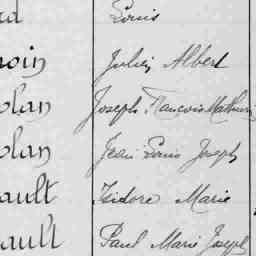 rd Louis
noin Julien Albert
olan Joseph François Mathurin
olan Jean Louis Joseph
ault Isidore Marie
ault Paul Marie Joseph